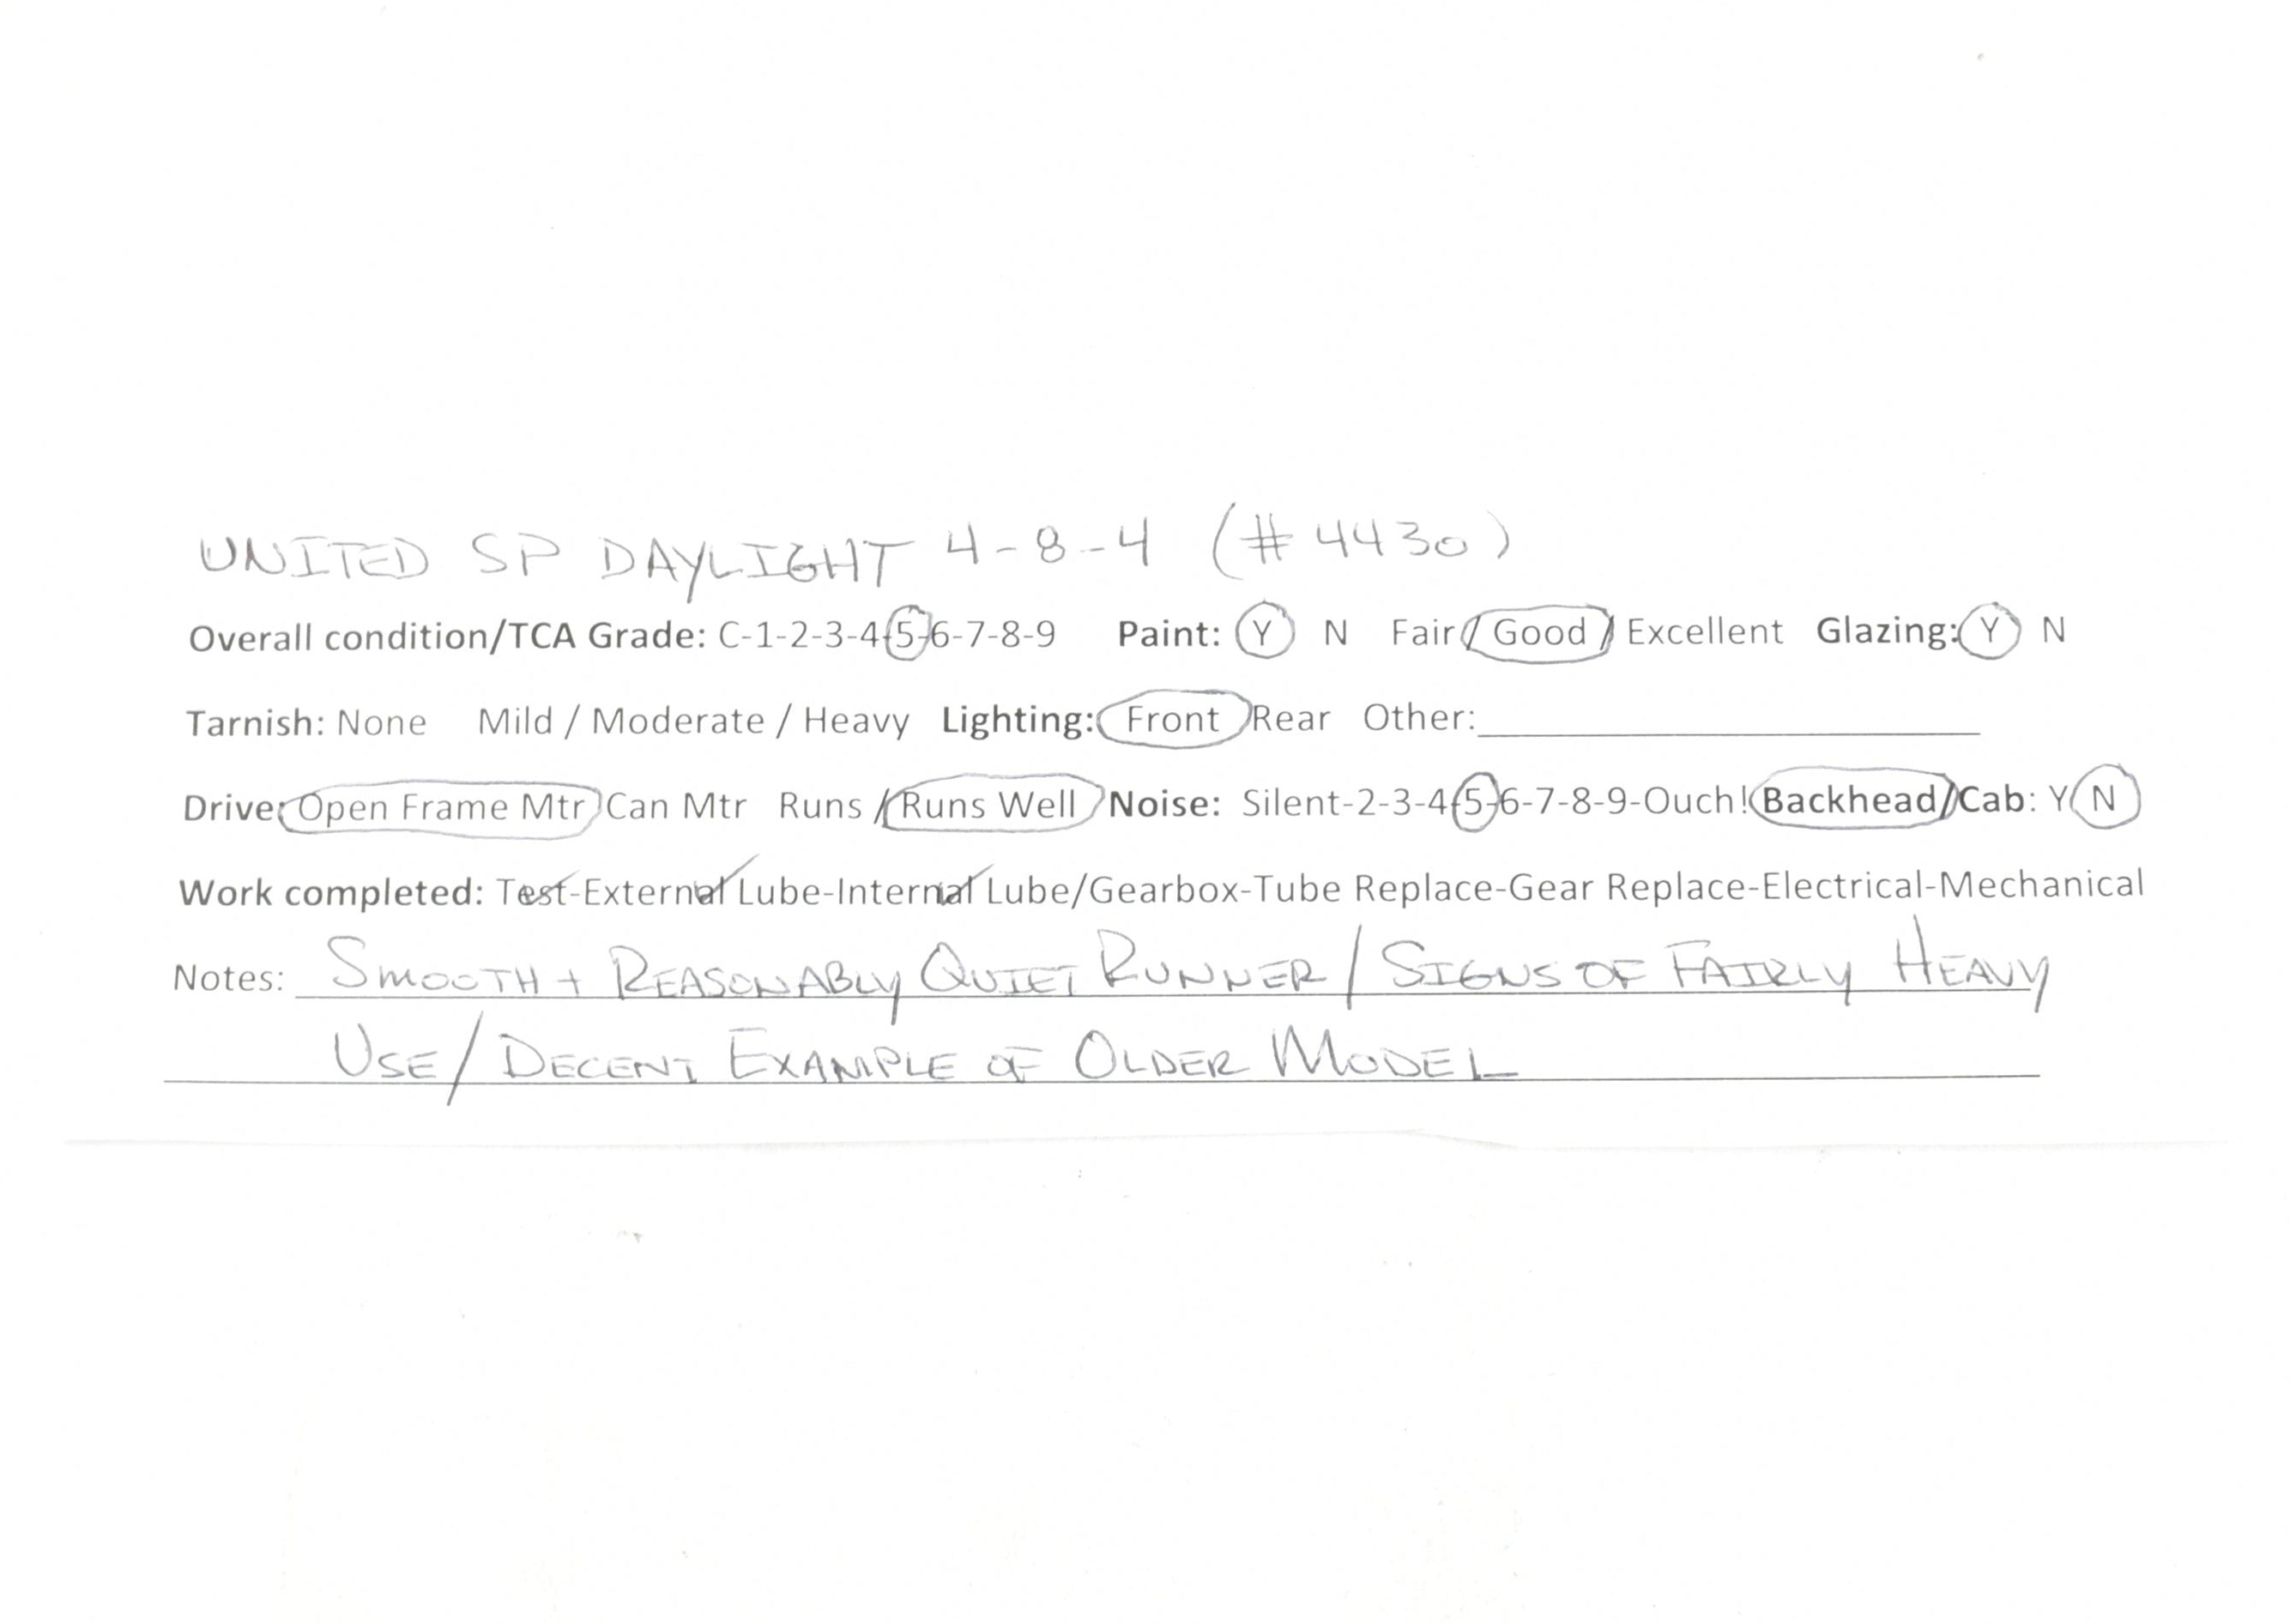 UNITED SP DAYLIGHT 4-8-4 (#4430)
Overall condition/TCA Grade: C-1-2-3-4-5-6-7-8-9 Paint: Y N Fair / Good / Excellent Glazing: Y N
Tarnish: None Mild / Moderate / Heavy Lighting: Front Rear Other:
Drive: Open Frame Mtr Can Mtr Runs / Runs Well Noise: Silent-2-3-4-5-6-7-8-9-Ouch! Backhead/Cab: Y N
Work completed: Test-External Lube-Internal Lube/Gearbox-Tube Replace-Gear Replace-Electrical-Mechanical
Notes: SMOOTH + REASONABLY QUIET RUNNER / SIGNS OF FAIRLY HEAVY
USE / DECENT EXAMPLE OF OLDER MODEL